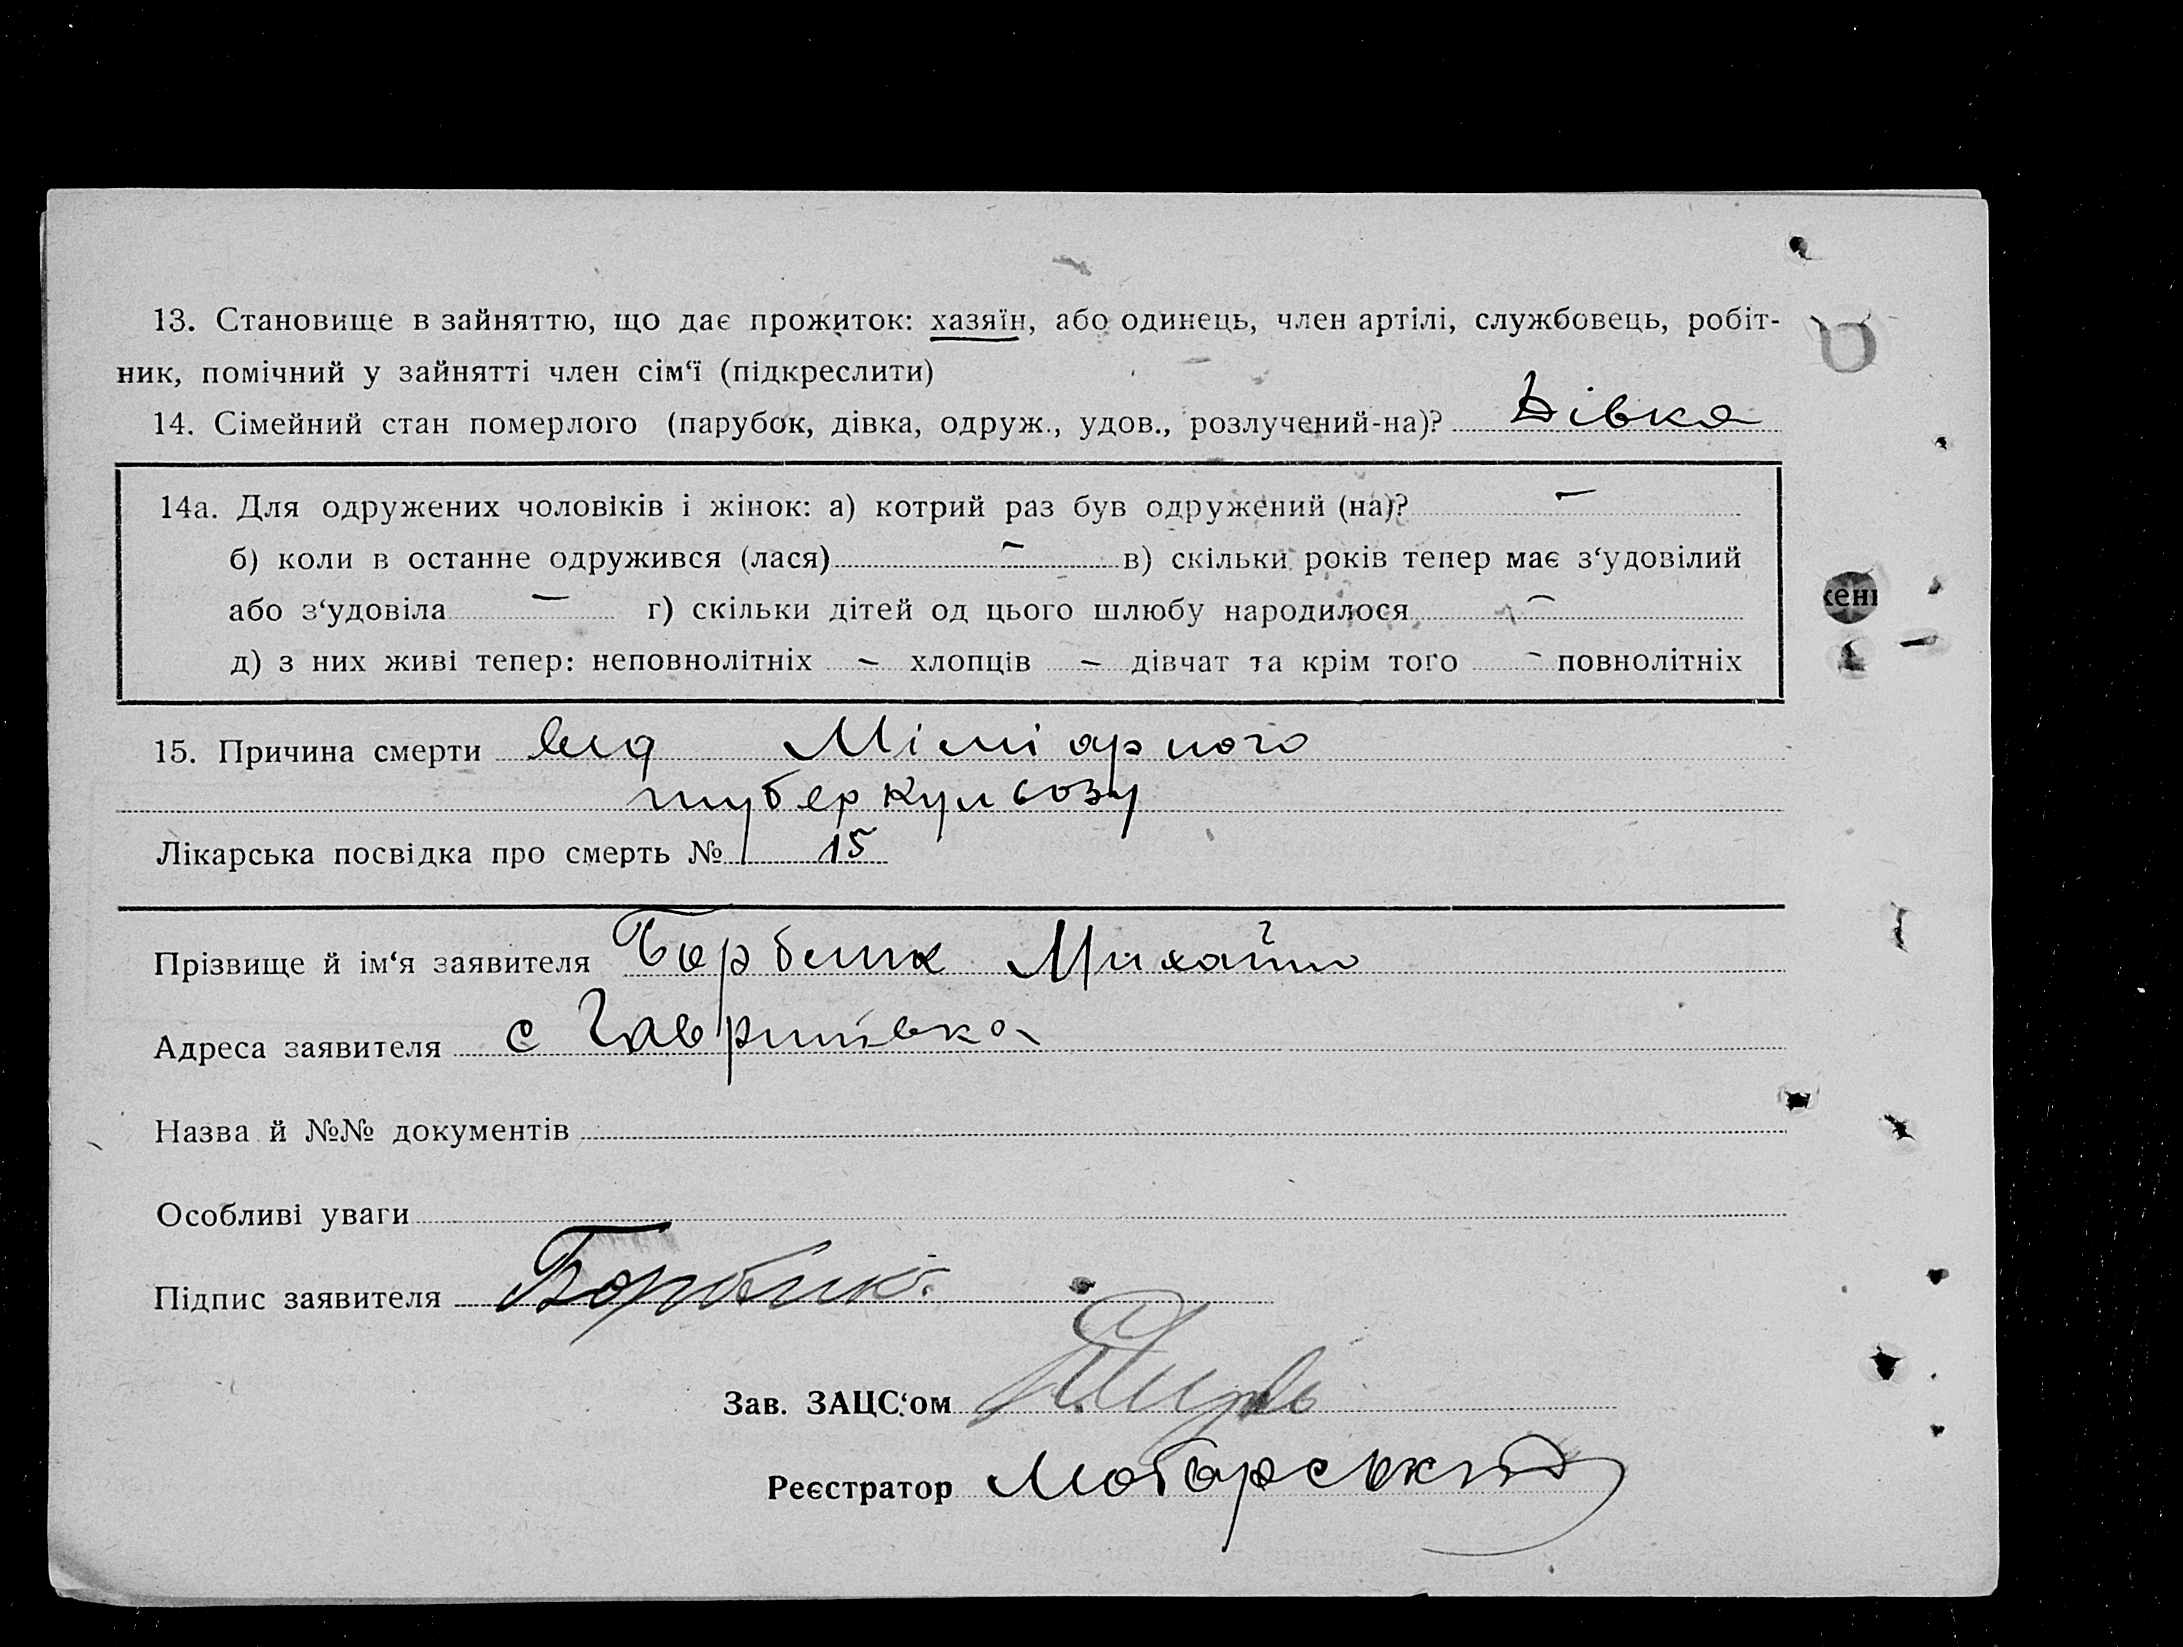 13. Становище в зайняттю, що дає прожиток: хазяїн, або одинець, член артілі, службовець, робіт-
ник, помічний у зайнятті член сім‘ї (підкреслити)
14. Сімейний стан померлого (парубок, дівка, одруж., удов., розлучений-на)? Дівка
14а. Для одружених чоловіків і жінок: а) котрий раз був одружений (на)? —
б) коли в останнє одружився (лася) — в) скільки років тепер має з‘удовілий
або з‘удовіла — г) скільки дітей од цього шлюбу народилося —
д) з них живі тепер: неповнолітніх — хлопців — дівчат та крім того — повнолітніх
15. Причина смерти від Міліарного
туберкульозу
Лікарська посвідка про смерть № 15
Прізвище й ім‘я заявителя Борблик Михайло
Адреса заявителя с Гаврилівка
Назва й №№ документів
Особливі уваги
Підпис заявителя Борблик
Зав. ЗАЦС‘ом
Реєстратор